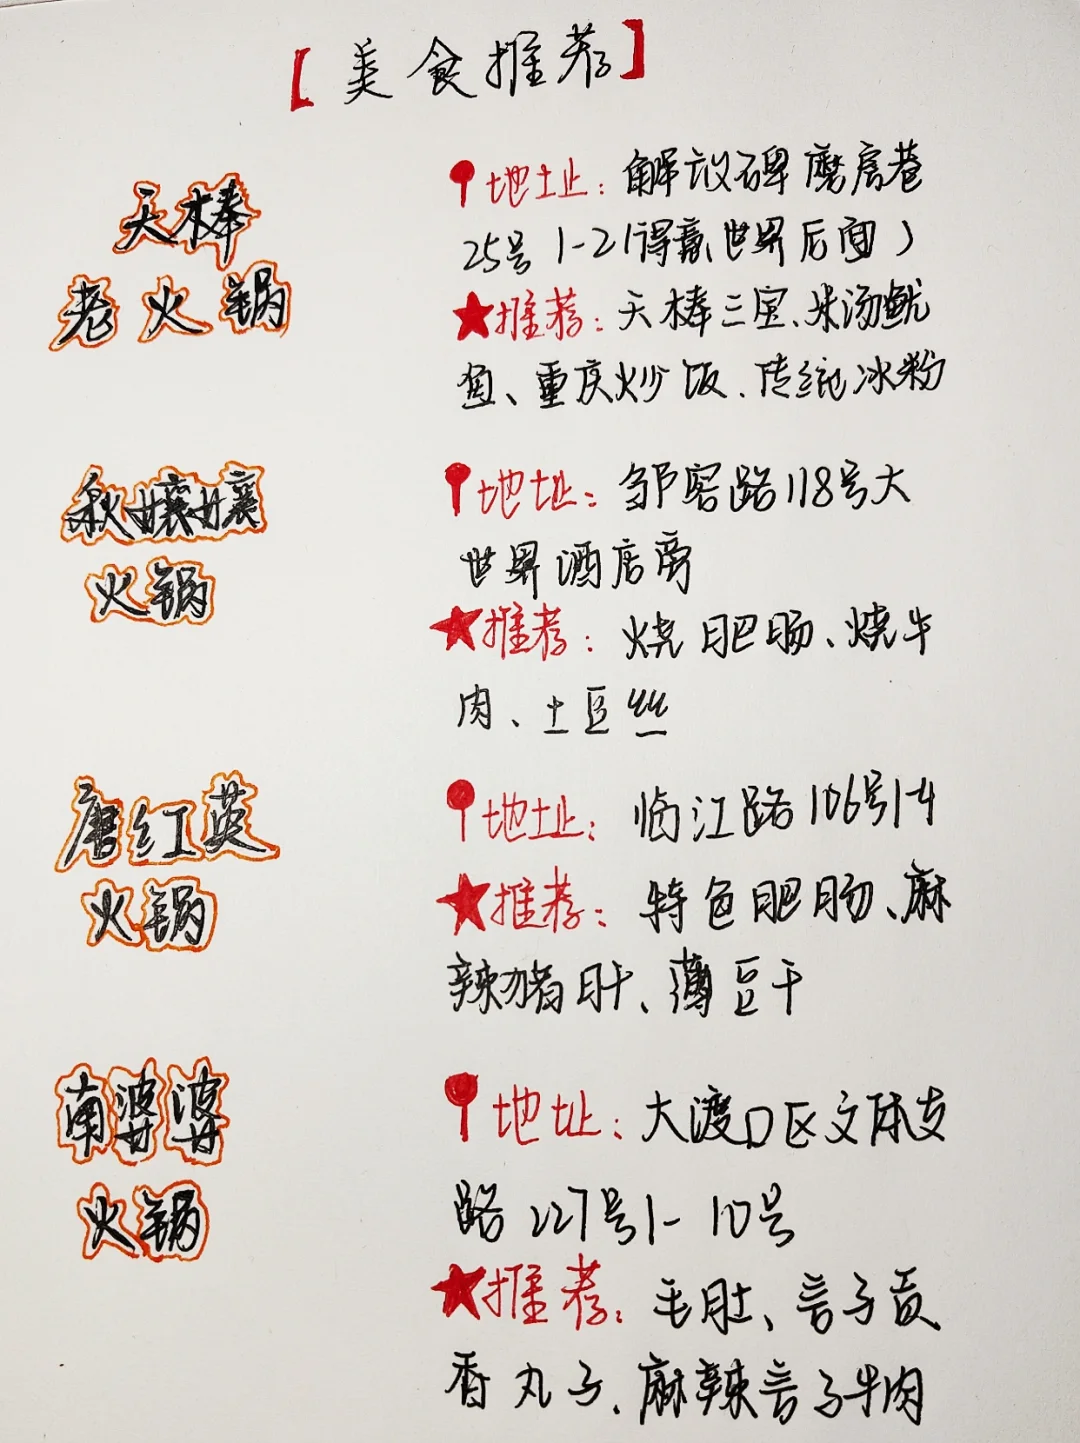 【美食推荐】
天棒
老火锅
地址：解放碑磨房巷
25号1-2（得意世界后面）
推荐：天棒三宝、米汤鱿
鱼、重庆炒饭、传统冰粉
秋孃孃
火锅
地址：邹容路118号大
世界酒店旁
推荐：烧肥肠、烧牛
肉、土豆丝
唐红英
火锅
地址：临江路106号1-4
推荐：特色肥肠、麻
辣猪肚、薄豆干
南婆婆
火锅
地址：大渡口区文体支
路227号1-10号
推荐：毛肚、言子贡
香丸子、麻辣言子牛肉